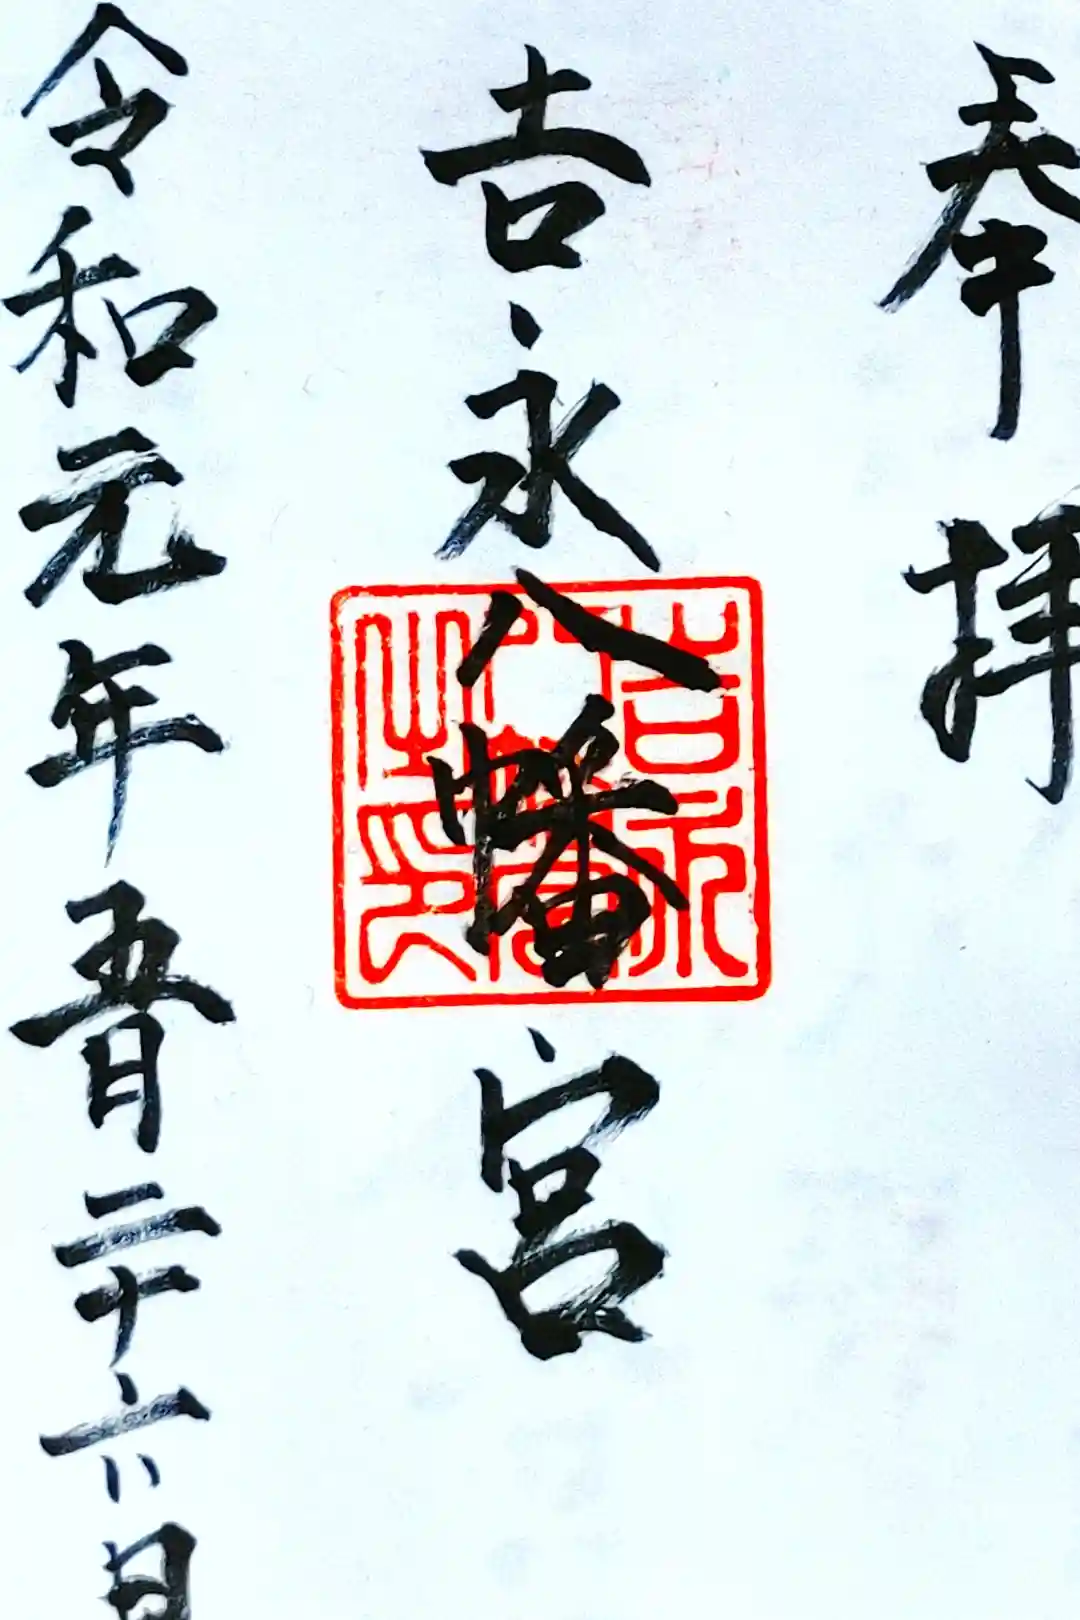 奉拝
吉永八幡宮
吉永
八幡宮
之印
令和元年五月二十六日